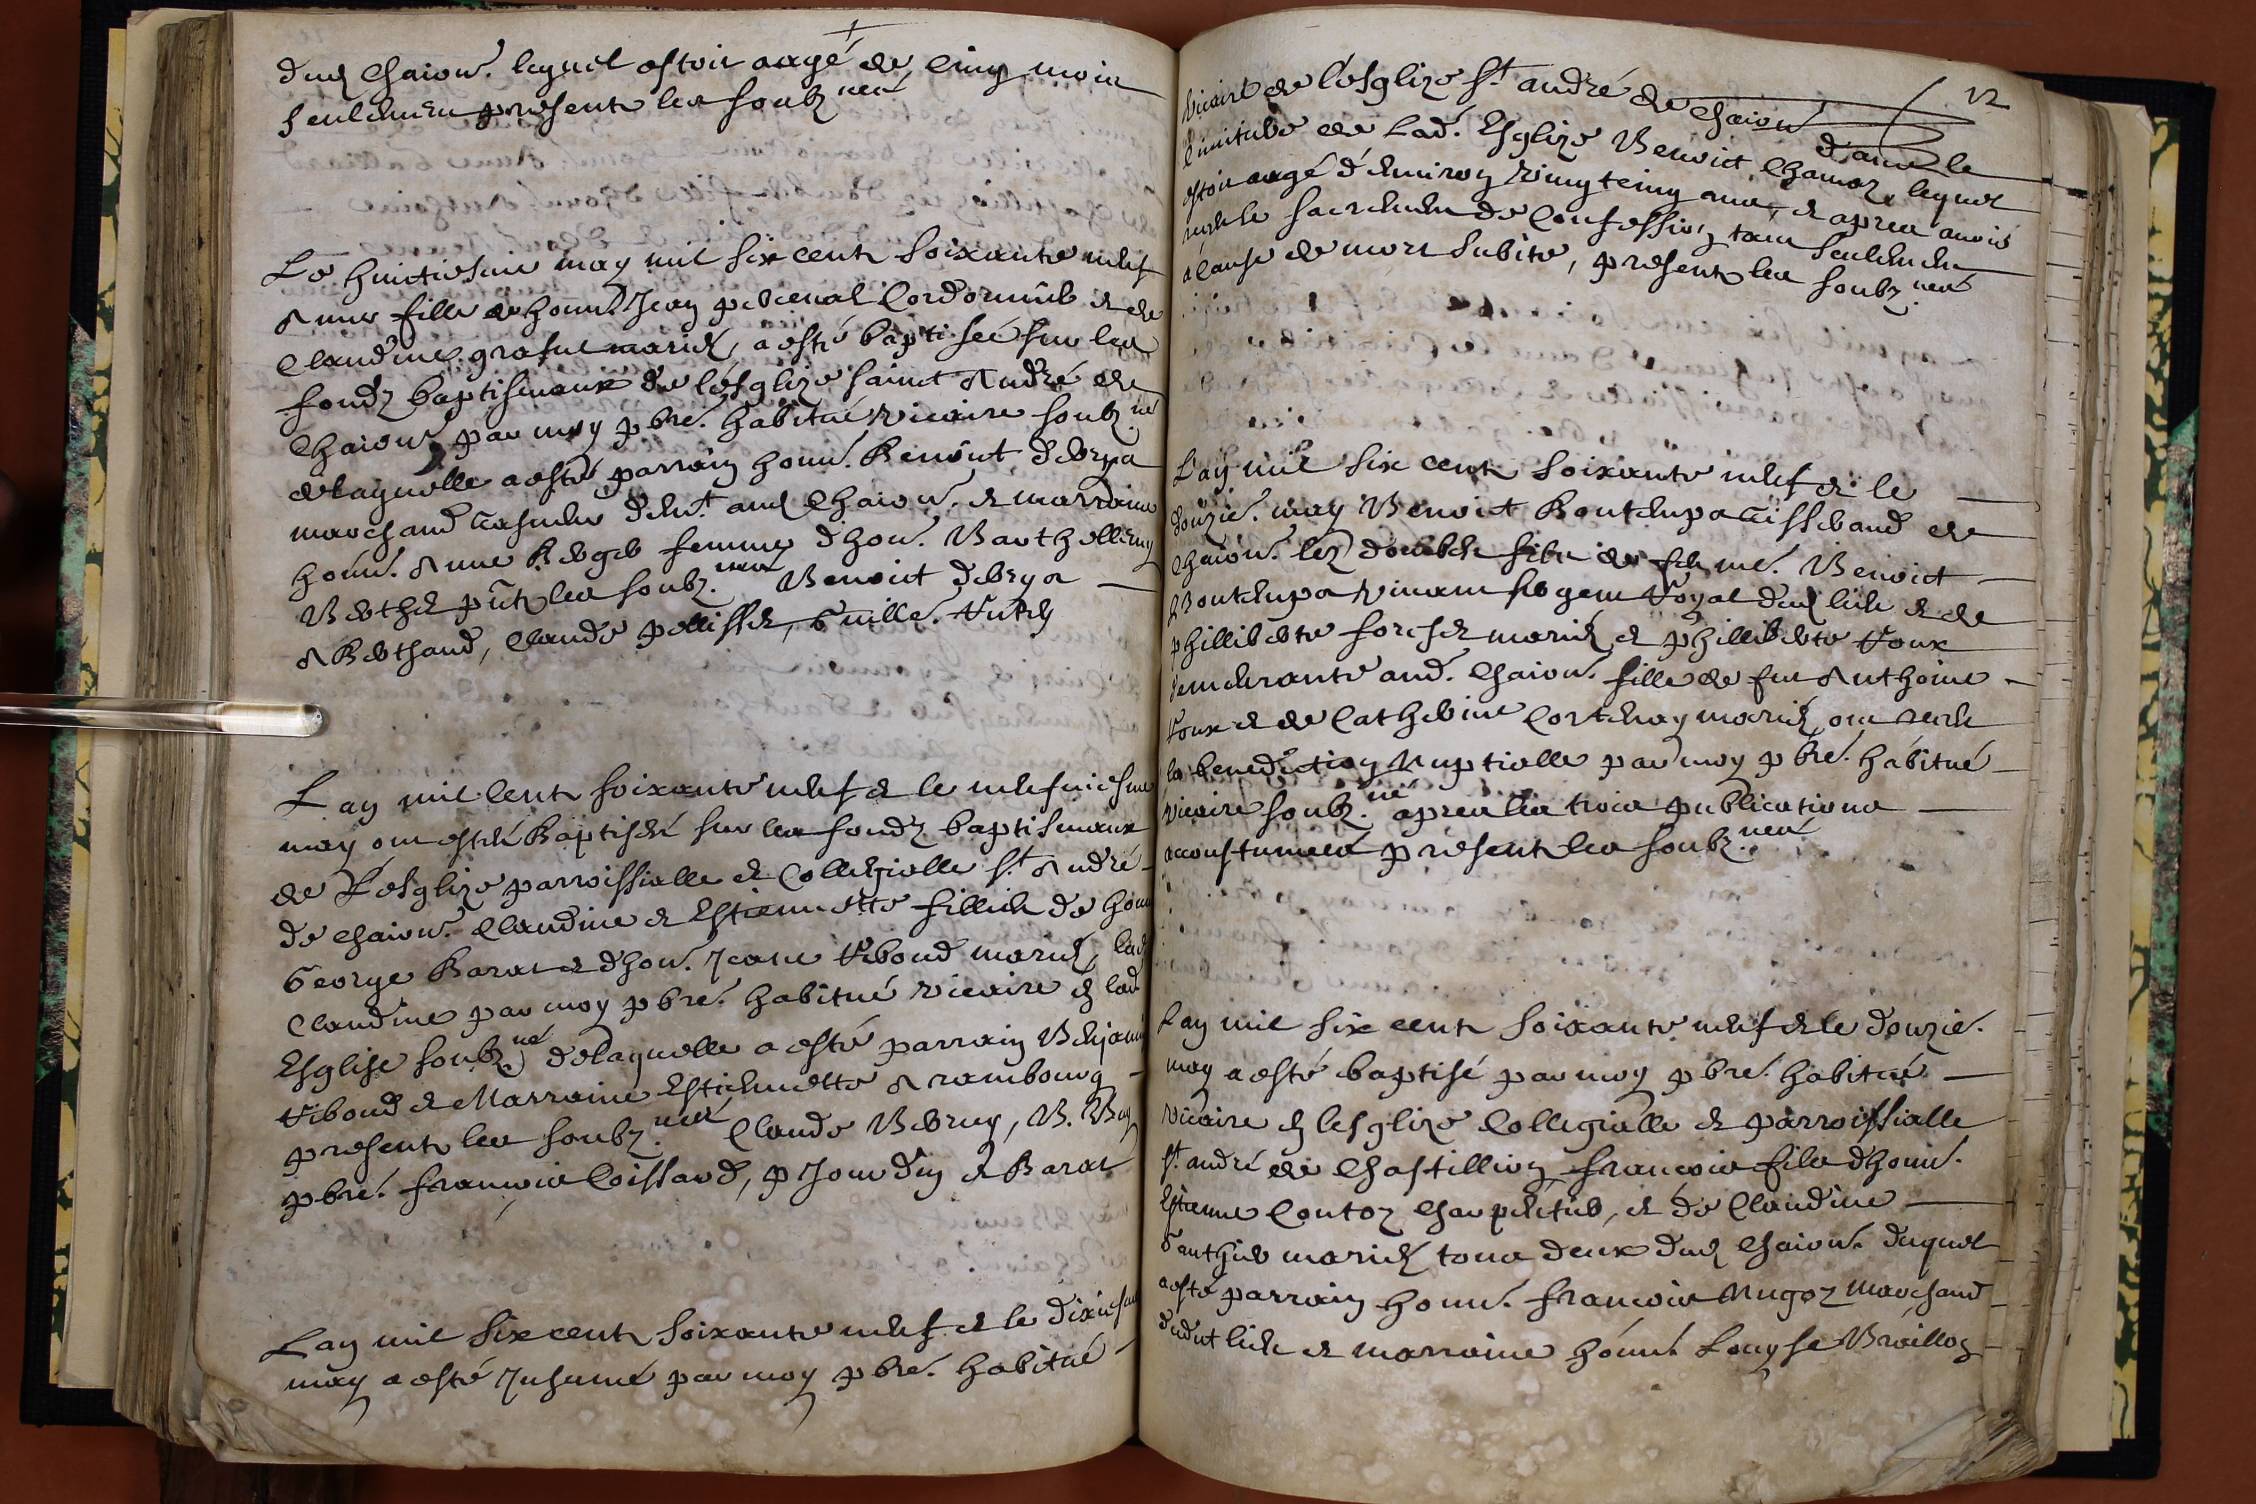 dud Chaton. lequel estoit aagé de cinq mois
seulement presents les soubz.nés
Le huictiesme may mil six cents soixante neuf
Anne fille de honn. Jean perceval Cordonnier et de
Claudine mariés, a esté baptiseé sur les
fondz baptismaux de l'esglize sainct André de
Chaton par moy pbre. habitué vicaire soubz.né
de laquelle a esté parrain honn. Benoit
marchand demt. aud Chaton. et marraine
honn. Anne femme d'hon. Barthellemy
Berthet pnts les soubz.nés Benoict
A Berthaud, Claude pellisset, Guille.
L'an mil cents soixante neuf et le neufuiesme
may ont estéé Baptiséé sur les fondz baptismaux
de L'esglize parroissialle et Collegialle St. André
de Chaton. Claudine et Estiennette filliés de honn
George Barat et d'hon. Jeane Tiboud mariés, lad
Claudine par moy pbre. habitué vicaire en lad
Esglise soubz.né de laquelle a esté parrain Benjamin
Tiboud et Marraine Estiennette Arambourg
presents les soubz.nés Claude, B.
pbre. francois Coissard, p Jourdin et Barat
L'an mil six cents soixante neuf et le dixiesme
may a esté Inhumé par moy pbre. habitué
12
vicaire de l'esglize St. andré de Chaton dans le
Cimitiere de Lad. Esglize Benoict Chanoz lequel
estoit aagé d'environ vingt cinq ans, et apres avoir
receu le sacrement de Confession tant seulement
a cause de mort subite, presents les soubz.nés
L'an mil six cents soixante neuf et le
douzie. may Benoict tisserand de
Chaton. lez doubte filz de feu me. Benoict
royal dud lieu et de
philliberte mariés et phillibérte Roux
demeurante aud. Chaton. fille de feu Anthoine
Roux et de Catherine mariés ont receu
la benediction Nuptialle par moy pbré. habitué
vicaire soubz.né apres les trois publications
accoustumées présents les soubz.nés
L'an mil six cents soixante neuf et le douzie.
may a esté baptisé par moy pbre. habitué
vicaire en l'esglize Collegialle et parroissialle
St. andré de Chastillion francois filz d'honn.
Estienne Coutoz Charpentier, et de Claudine
Gauthier mariés tous deux dud Chaton. duquel
a esté parrain honn. francois Nugoz marchand
dudit lieu et marraine honn. Louyse